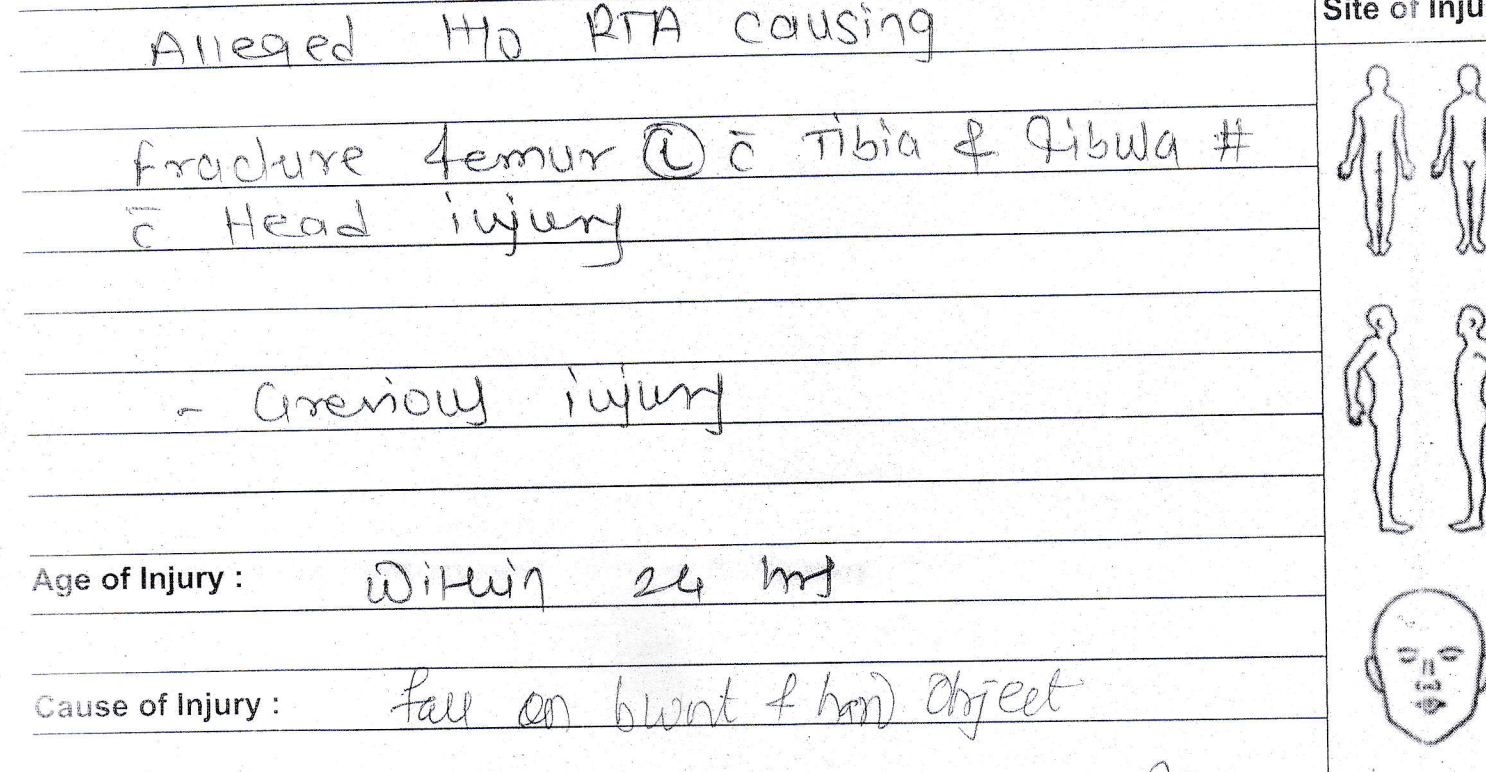 Alleged H/o RTA causing
Site of Inju
fracture femur Ⓛ c̄ Tibia & fibula #
c̄ Head injury
- Grevious injury
Age of Injury : Within 24 hrs
Cause of Injury : fall on blunt & hard Object